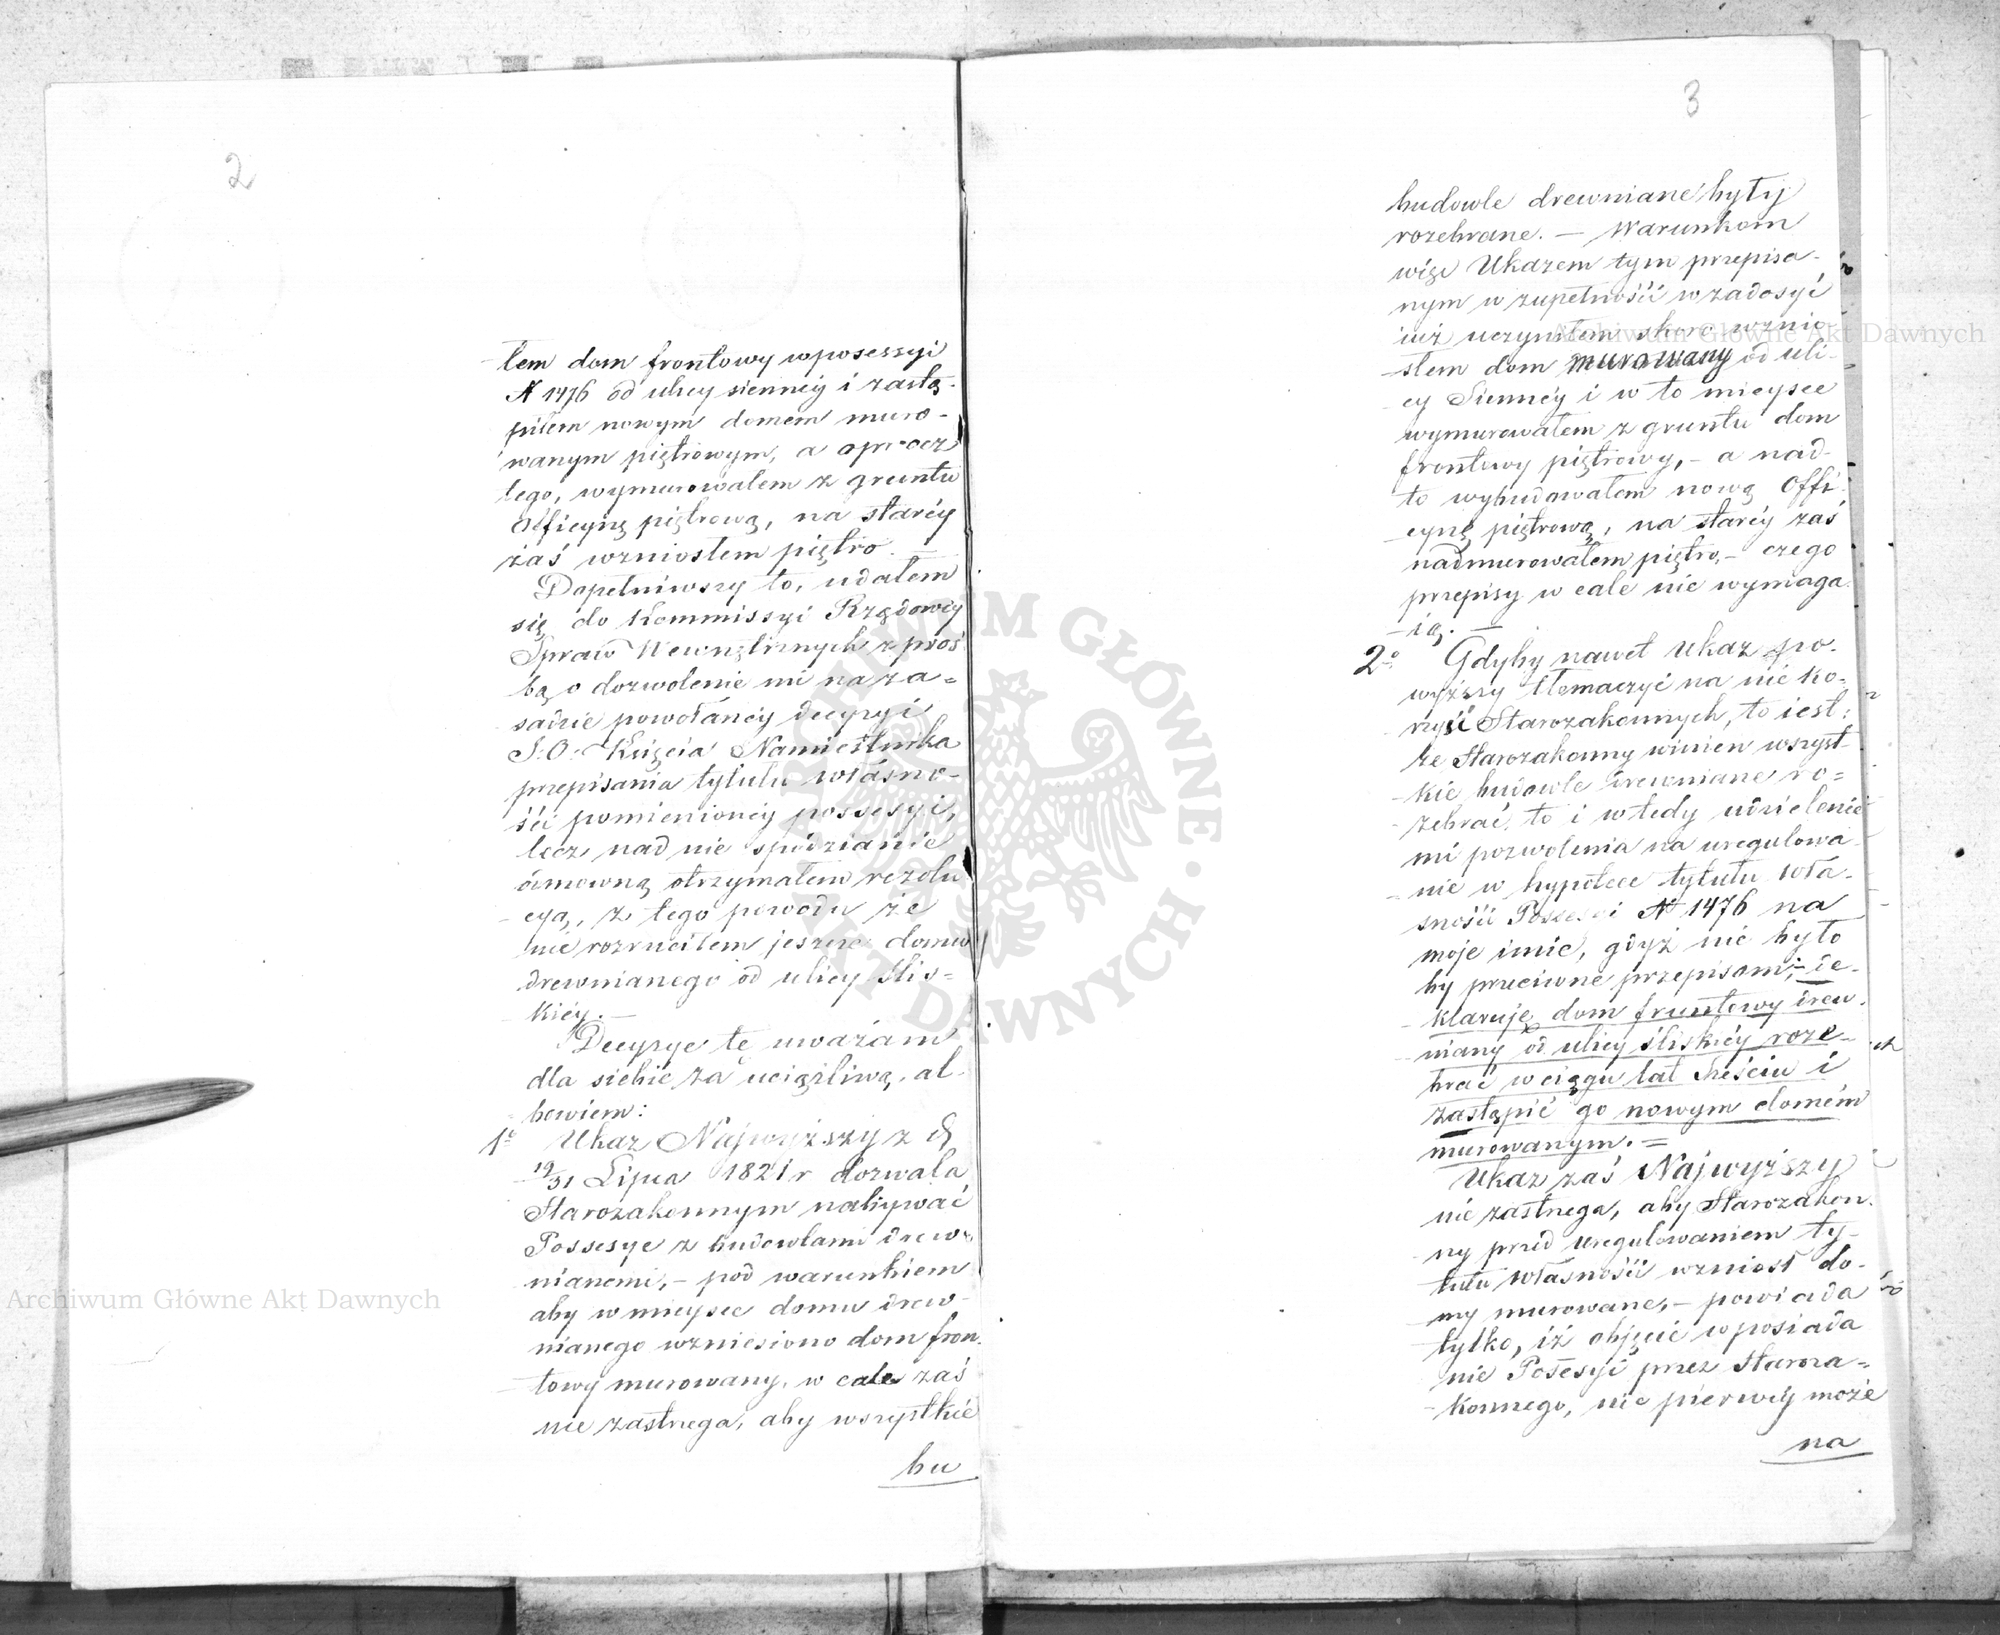 2
łem dom frontowy w possessyi
N 1476 od ulicy siennéy i zastą-
piłem nowym domem muro-
wanym piętrowym, a oprócz
tego, wymurowałem z gruntu
Officynę piętrową, na staréy
zaś wzniosłem piętro. —
Dopełniwszy to, udałem
się do Kommissyi Rządowéy
Spraw Wewnętrznych z proś
bą o dozwolenie mi na za=
sadzie powołanéy decyzyi
J: O: Księcia Namiestnika
przepisania tytułu własno-
ści pomienionéy possesyi,
lecz nad nie spodzianie
odmowną otrzymałem rezolu
cyą, z tego powodu że
nie rozrzuciłem jeszcze domu
drewnianego od ulicy Ślis=
kiéy. —
Decyzye tę uważam
dla siebie za uciążliwą, al-
bowiem:
1o Ukaz Najwyższy z d
19/31 Lipca 1821 r dozwala
Starozakonnym nabywać
Possesye z budowlami drew-
nianemi, — pod warunkiem
aby w mieysce domu drew-
nianego wzniesiono dom fron-
towy murowany, w cale zaś
nie zastrzega, aby wszystkie
bu
3
budowle drewniane były
rozebrane. — Warunkom
więc Ukazem tym przepisa-
nym w zupełności w zadosyć
iuż uczyniłem skoro wznio-
słem dom murowany od uli-
cy Siennéy i w to mieysce
wymurowałem z gruntu dom
frontowy piętrowy, — a nad-
to wybudowałem nową Offi-
cynę piętrową, na staréy zaś
nadmurowałem piętro, — czego
przepisy w cale nie wymaga-
ią. —
2o Gdyby nawet Ukaz po-
wyższy tłómaczyć na nie ko-
rzyść Starozakonnych, to iest:
że Starozakonny winien wszyst-
kie budowle drewniane ro=
zebrać, to i wtedy udzielenie
mi pozwolenia na uregulowa-
nie w hypotece tytułu wła-
sności Possesyi N 1476 na
moje imie, gdyż nie było
by przeciwne przepisom; — de-
klaruję dom frontowy drew-
niany od ulicy śliskiéy roze-
brać w ciągu lat sześciu i
zastąpić go nowym domem
murowanym. =
Ukaz zaś Najwyższy
nie zastrzega, aby Starozakon-
ny przed uregulowaniem ty-
tułu własności wzniosł do-
my murowane, — powiada
tylko, iż objęcie w posiada
nie Posesyi przez Staroza-=
konnego, nie pierwéy może
na
Archiwum Główne Akt Dawnych
Archiwum Główne Akt Dawnych
ARCHIWUM GŁÓWNE · AKT DAWNYCH ·